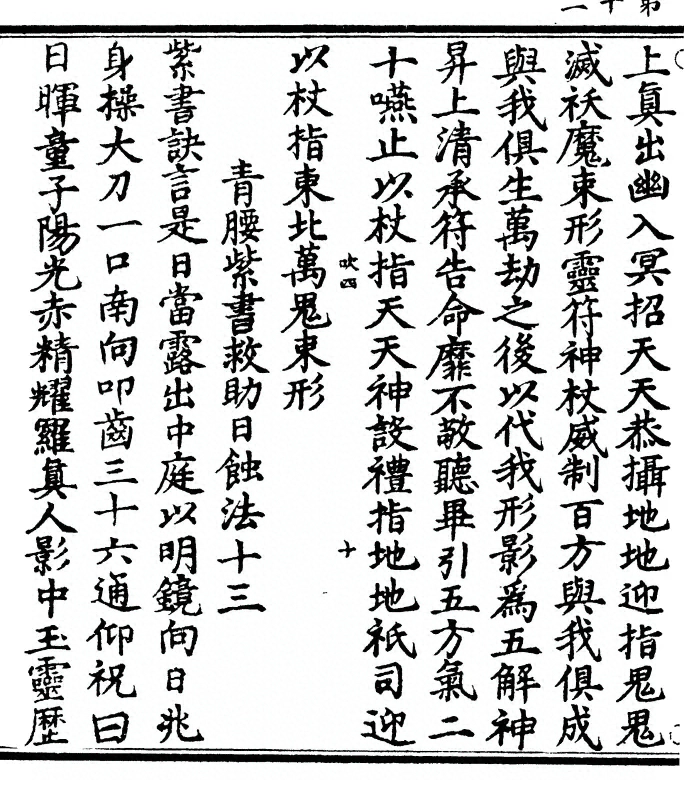 上真出幽入冥招天天恭攝地地迎指鬼鬼
滅祅魔束形靈符神杖威制百方與我俱成
與我俱生萬劫之後以代我形影爲五解神
昇上清承符告命靡不敬聽畢引五方氣二
十嚥止以杖指天天神設禮指地地祇司迎
以杖指東北萬鬼束形
青腰紫書救助日蝕法十三
紫書訣言是日當露出中庭以明鏡向日兆
身操大刀一口南向叩齒三十六通仰祝曰
日暉童子陽光赤精耀羅真人影中玉靈歷